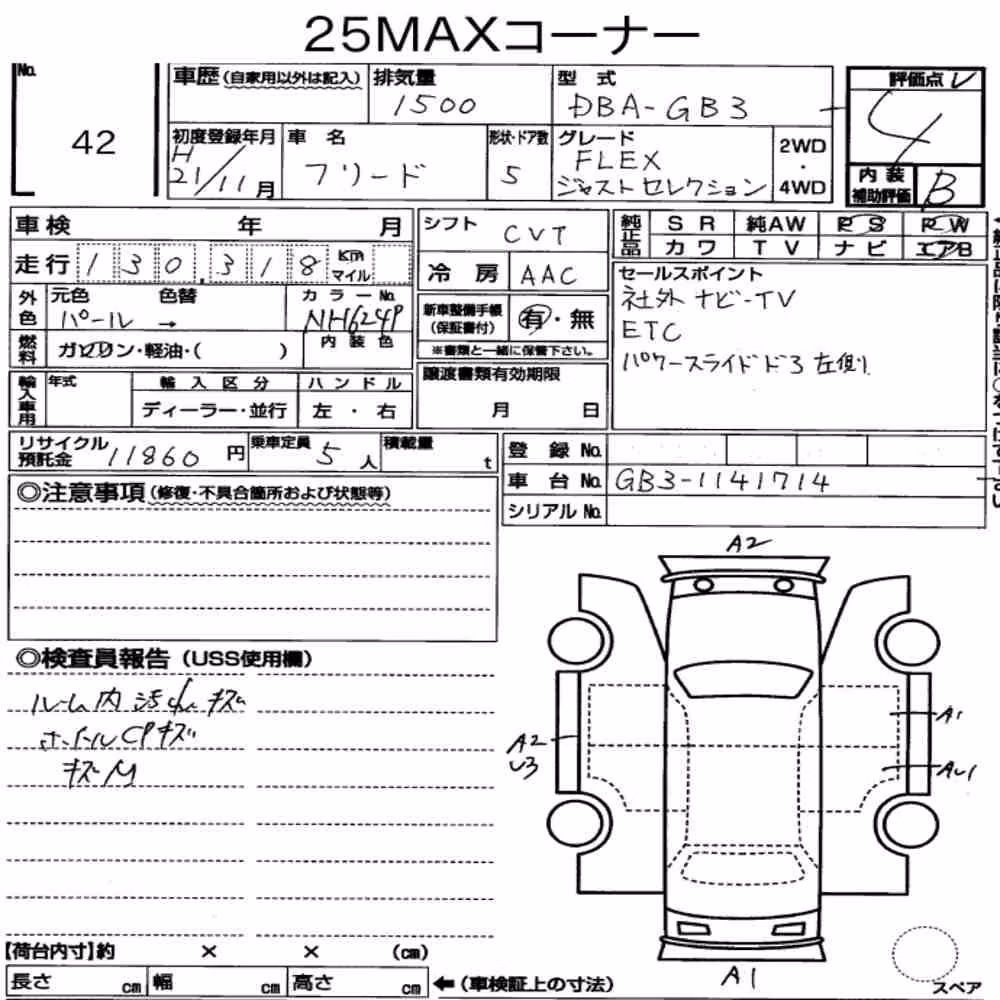 25MAXコーナー
No.
42
車歴(自家用以外は記入)
排気量
1500
型式
DBA-GB3
評価点
4
初度登録年月
H
21/11月
車名
フリード
形状・ドア数
5
グレード
FLEX
ジャストセレクション
2WD
・
4WD
内装
補助評価
B
車検 年 月
走行 130,318 Km マイル
外色
元色 色替
パール →
カラーNo.
NH624P
燃料
ガソリン・軽油・( )
内装色
輸入車用
年式
輸入区分
ディーラー・並行
ハンドル
左・右
シフト
CVT
冷房
AAC
新車整備手帳
(保証書付)
有・無
※書類と一緒に保管下さい。
譲渡書類有効期限
月 日
純正品
SR 純AW PS PW
カワ TV ナビ エアB
セールスポイント
社外ナビ-TV
ETC
パワースライドドア 左側
リサイクル
預託金
11860 円
乗車定員
5 人
積載量
t
登録No.
車台No. GB3-1141714
シリアルNo.
◎注意事項(修復・不具合箇所および状態等)
◎検査員報告(USS使用欄)
ルーム内 汚れ キズ
ホイールCPキズ
キズM
A2
A2
U3
A1
AU1
A1
スペア
【荷台内寸】約 × × (cm)
長さ cm 幅 cm 高さ cm ←(車検証上の寸法)